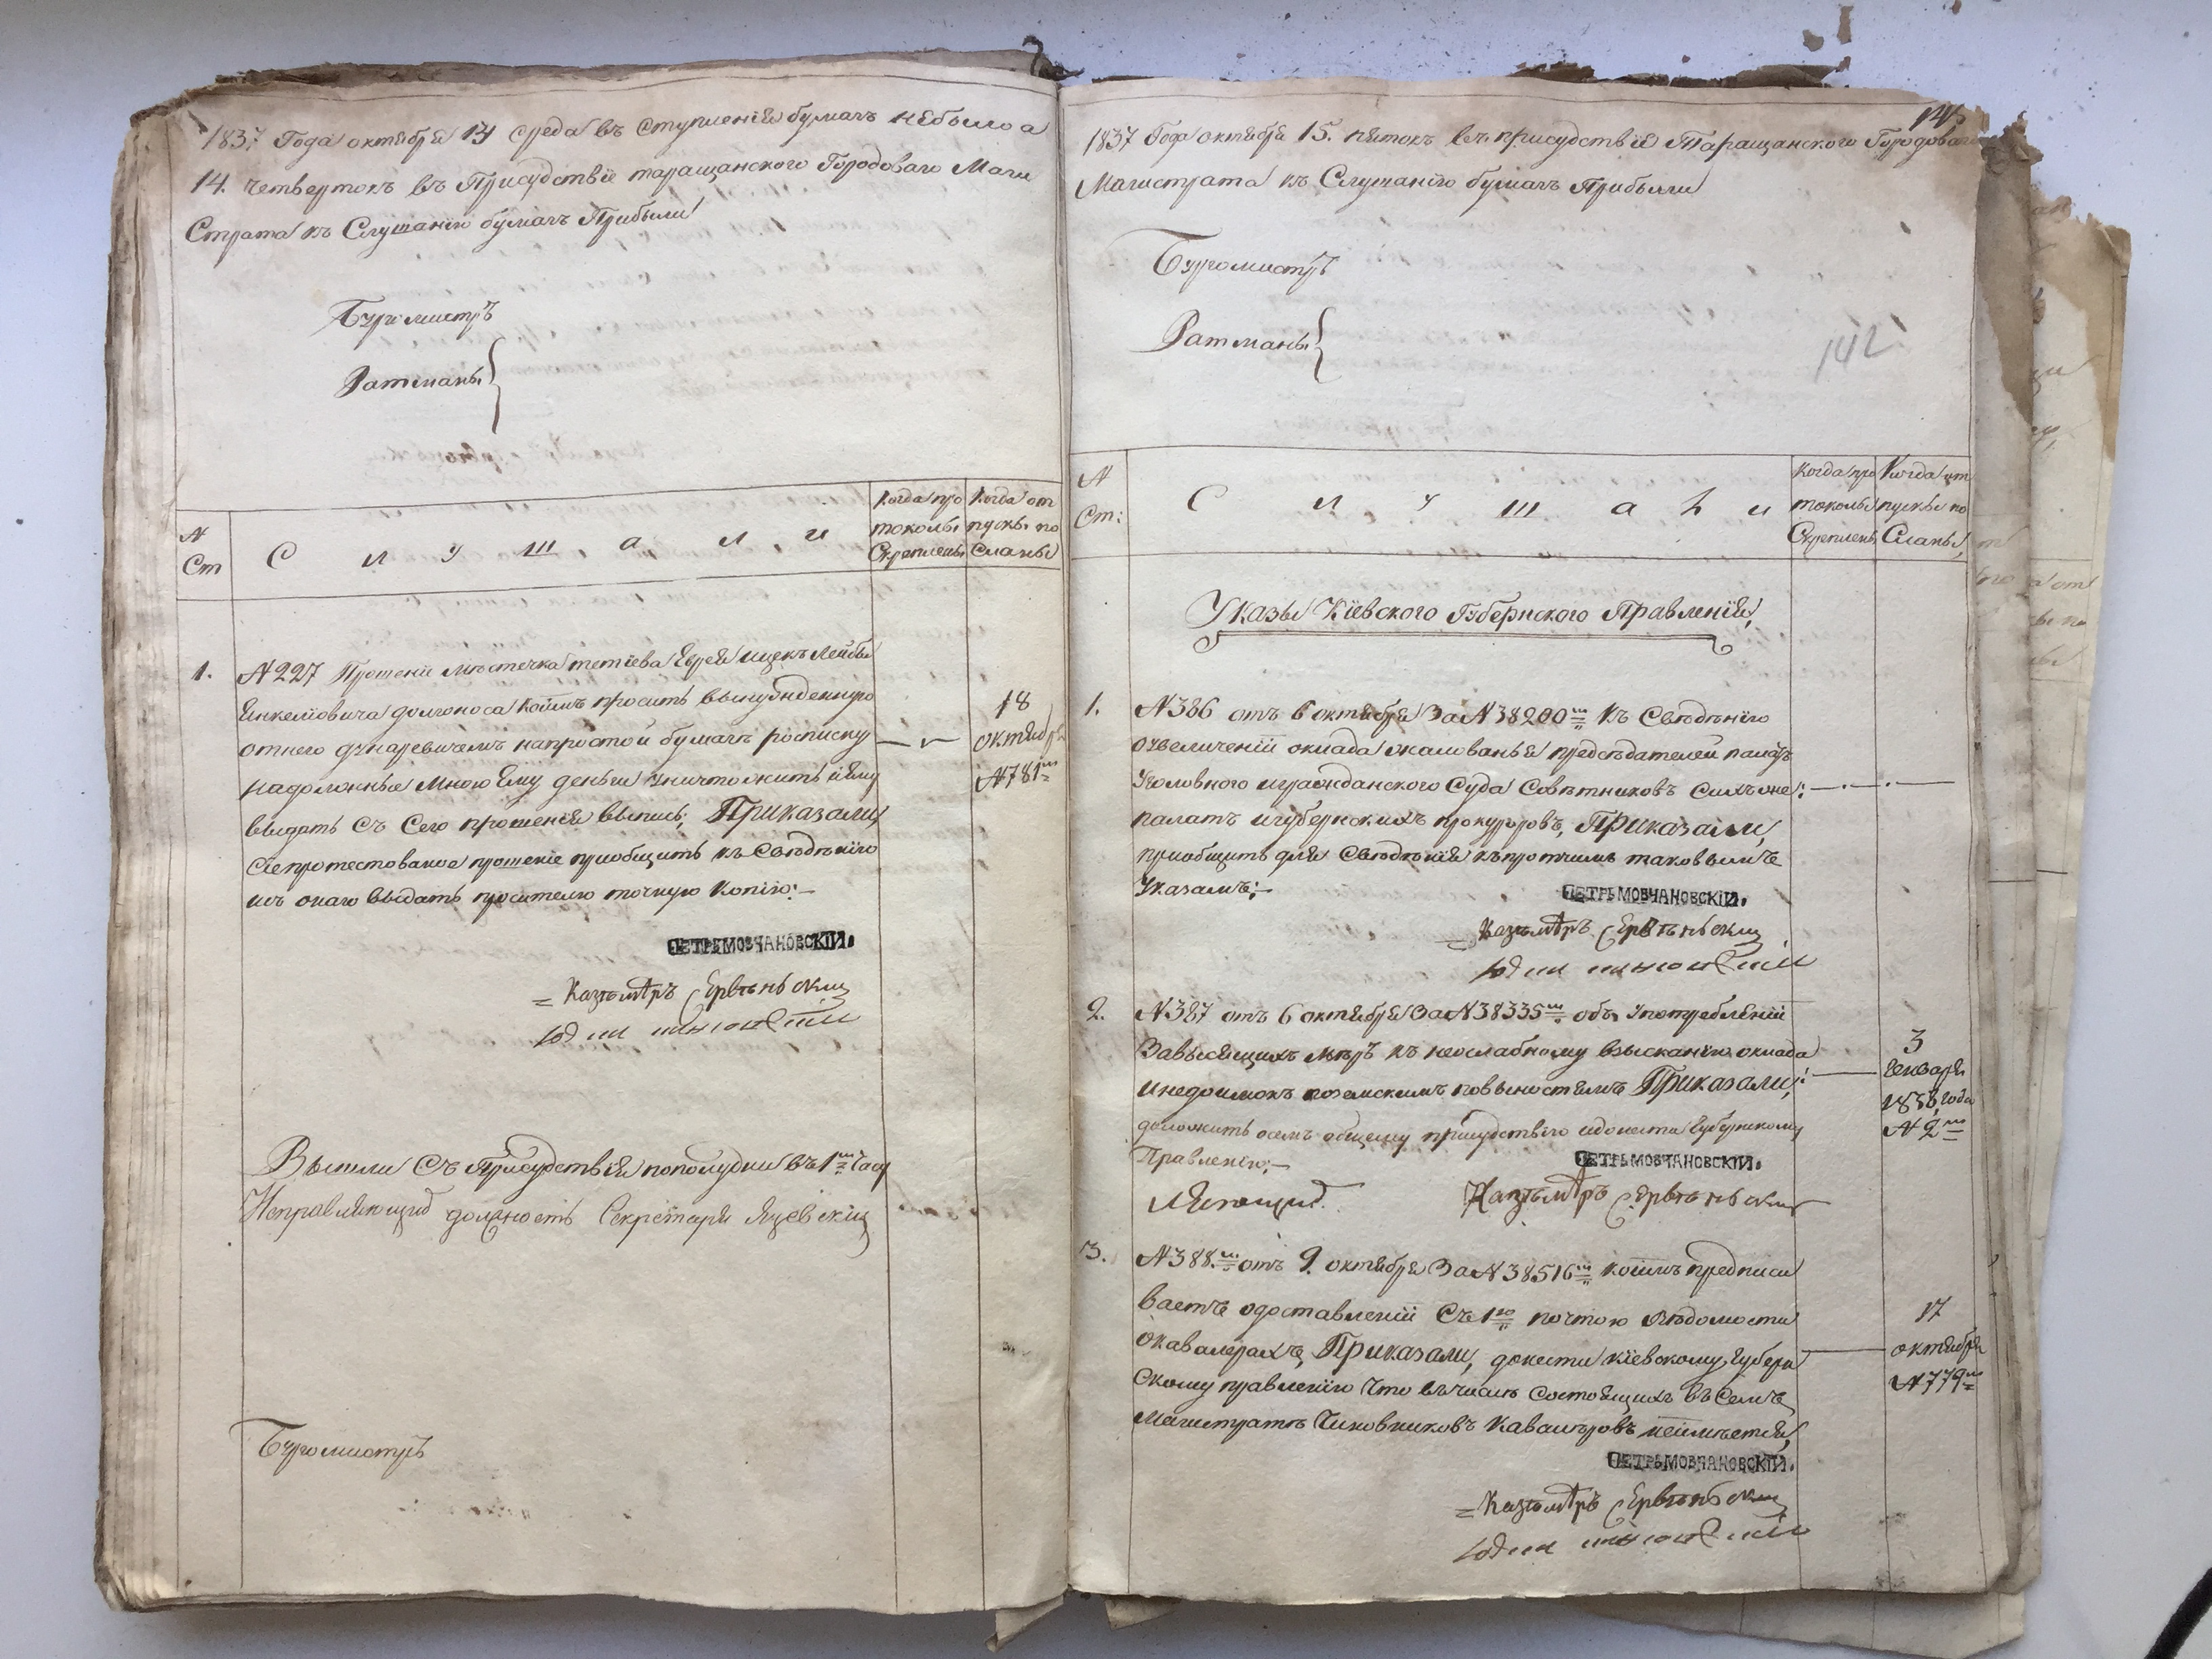 1837 Года октября 13 среда въ ступленія бумагъ небыло а
14. четвертокъ въ Присудствіе таращанского Городоваго Маги
Страта къ Слушанію бумагъ Прибыли
Бургомистръ
Ратманы
№ Ст
С л у ш а л и
Когда про токолы Скреплены
Когда от пуски по сланы
1. №227 Прошеніе мѣстечка тетіева Еврея ицекъ Лейбы
Янкелювича долгоноса коимъ проситъ вынужденную
отнего напростой бумагѣ росписку
надолжные мною ему деньги уничтожить иему
выдать съ сего прошенія выпись; Приказали,
сіе протестованое прошеніе приобщить къ Свѣдѣнію
изъ онаго выдать просителю точную копію:-
18
октября
№781
ПЕТРЪ МОВЧАНОВСКІЙ.
Вышли съ Присудствія пополудни въ 1 часу
Исправляющій должность Секретаря Яцевскій
Бургомистръ
1837 Года октября 15. пятокъ въ присудствіе Таращанского Городоваго
Магистрата къ Слушанію бумагъ Прибыли
142
Бургомистръ
Ратманы
№ Ст:
С л у ш а л и
Когда про токолы Скреплены
Когда от пуски по сланы
Указы Кіевского Губернского Правленія,
1. №386 отъ 6 октября За №38200 Къ Свѣдѣнію
оувеличеніи оклада жалованья предсѣдателей палатъ
Уголовного игражданского Суда Совѣтниковъ сихъ же:
палатъ игубернскихъ прокуроровъ, Приказали,
приобщить для Свѣдѣнія къпротчимъ таковымъ
Указамъ:-
ПЕТРЪ МОВЧАНОВСКІЙ.
2. №387 отъ 6 октября За №38335 объ употребленіи
Зависящихъ мѣръ къ неослабному взысканію оклада
инедоимокъ поземскимъ повыностямъ Приказали;
доложить осемъ общему присудствію идонести Губернскому
Правленію:-
3
Генваря
1838 года
№2
ПЕТРЪ МОВЧАНОВСКІЙ.
3. №388 отъ 9. октября За №38516 коимъ предписи
ваетъ одоставленіи съ 1 почтою вѣдомости
окавалерахъ, Приказали, донести кіевскому Губерн
скому правленію что въчислѣ состоящихъ въ Семъ
Магистратѣ Чиновниковъ кавалѣровъ неимѣется,
17
октября
№779
ПЕТРЪ МОВЧАНОВСКІЙ.